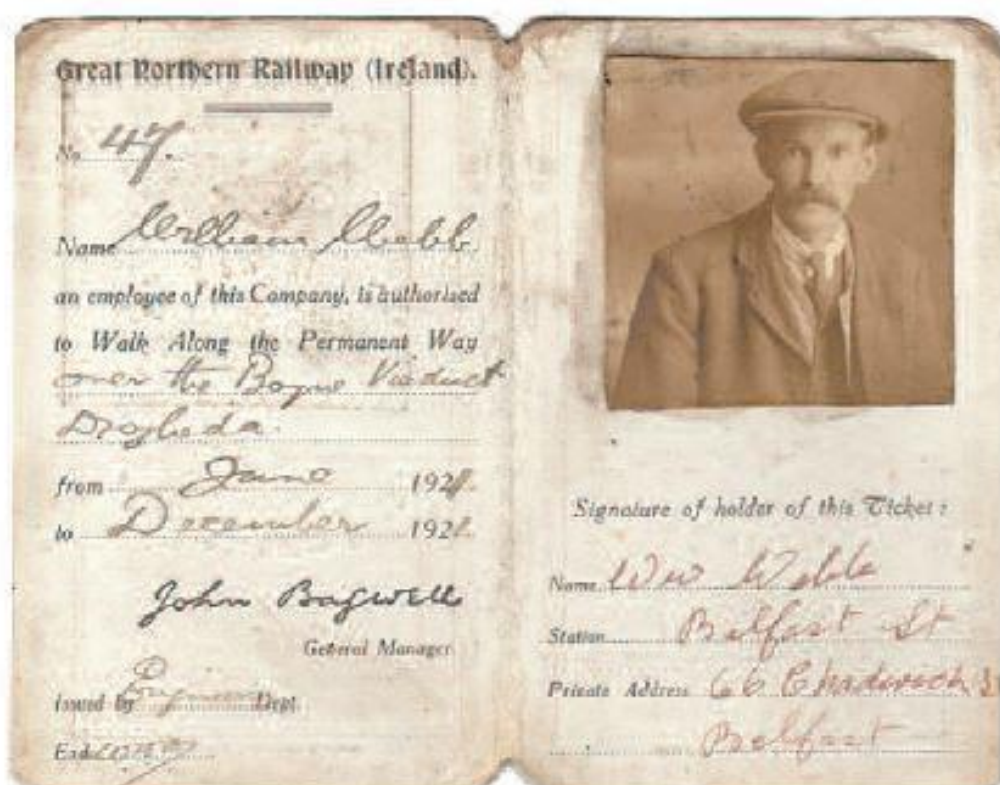 Great Northern Railway (Ireland).
No 47.
Name William Webb
an employee of this Company, is authorised
to Walk Along the Permanent Way
over the Boyne Viaduct
Drogheda.
from June 192
to December 192
John Bagwell
General Manager
Issued by Engineers Dept
Signature of holder of this Ticket:
Name Wm Webb
Station Belfast St
Private Address 66 Chadwick St
Belfast